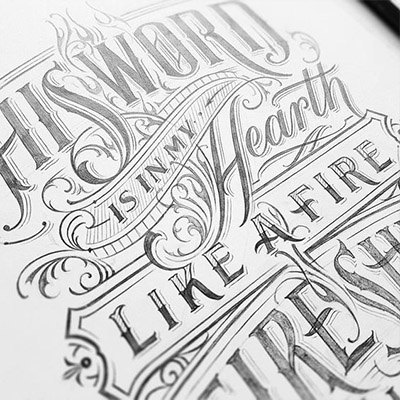 HIS WORD
IS IN MY Hearth
LIKE A FIRE
FIRE